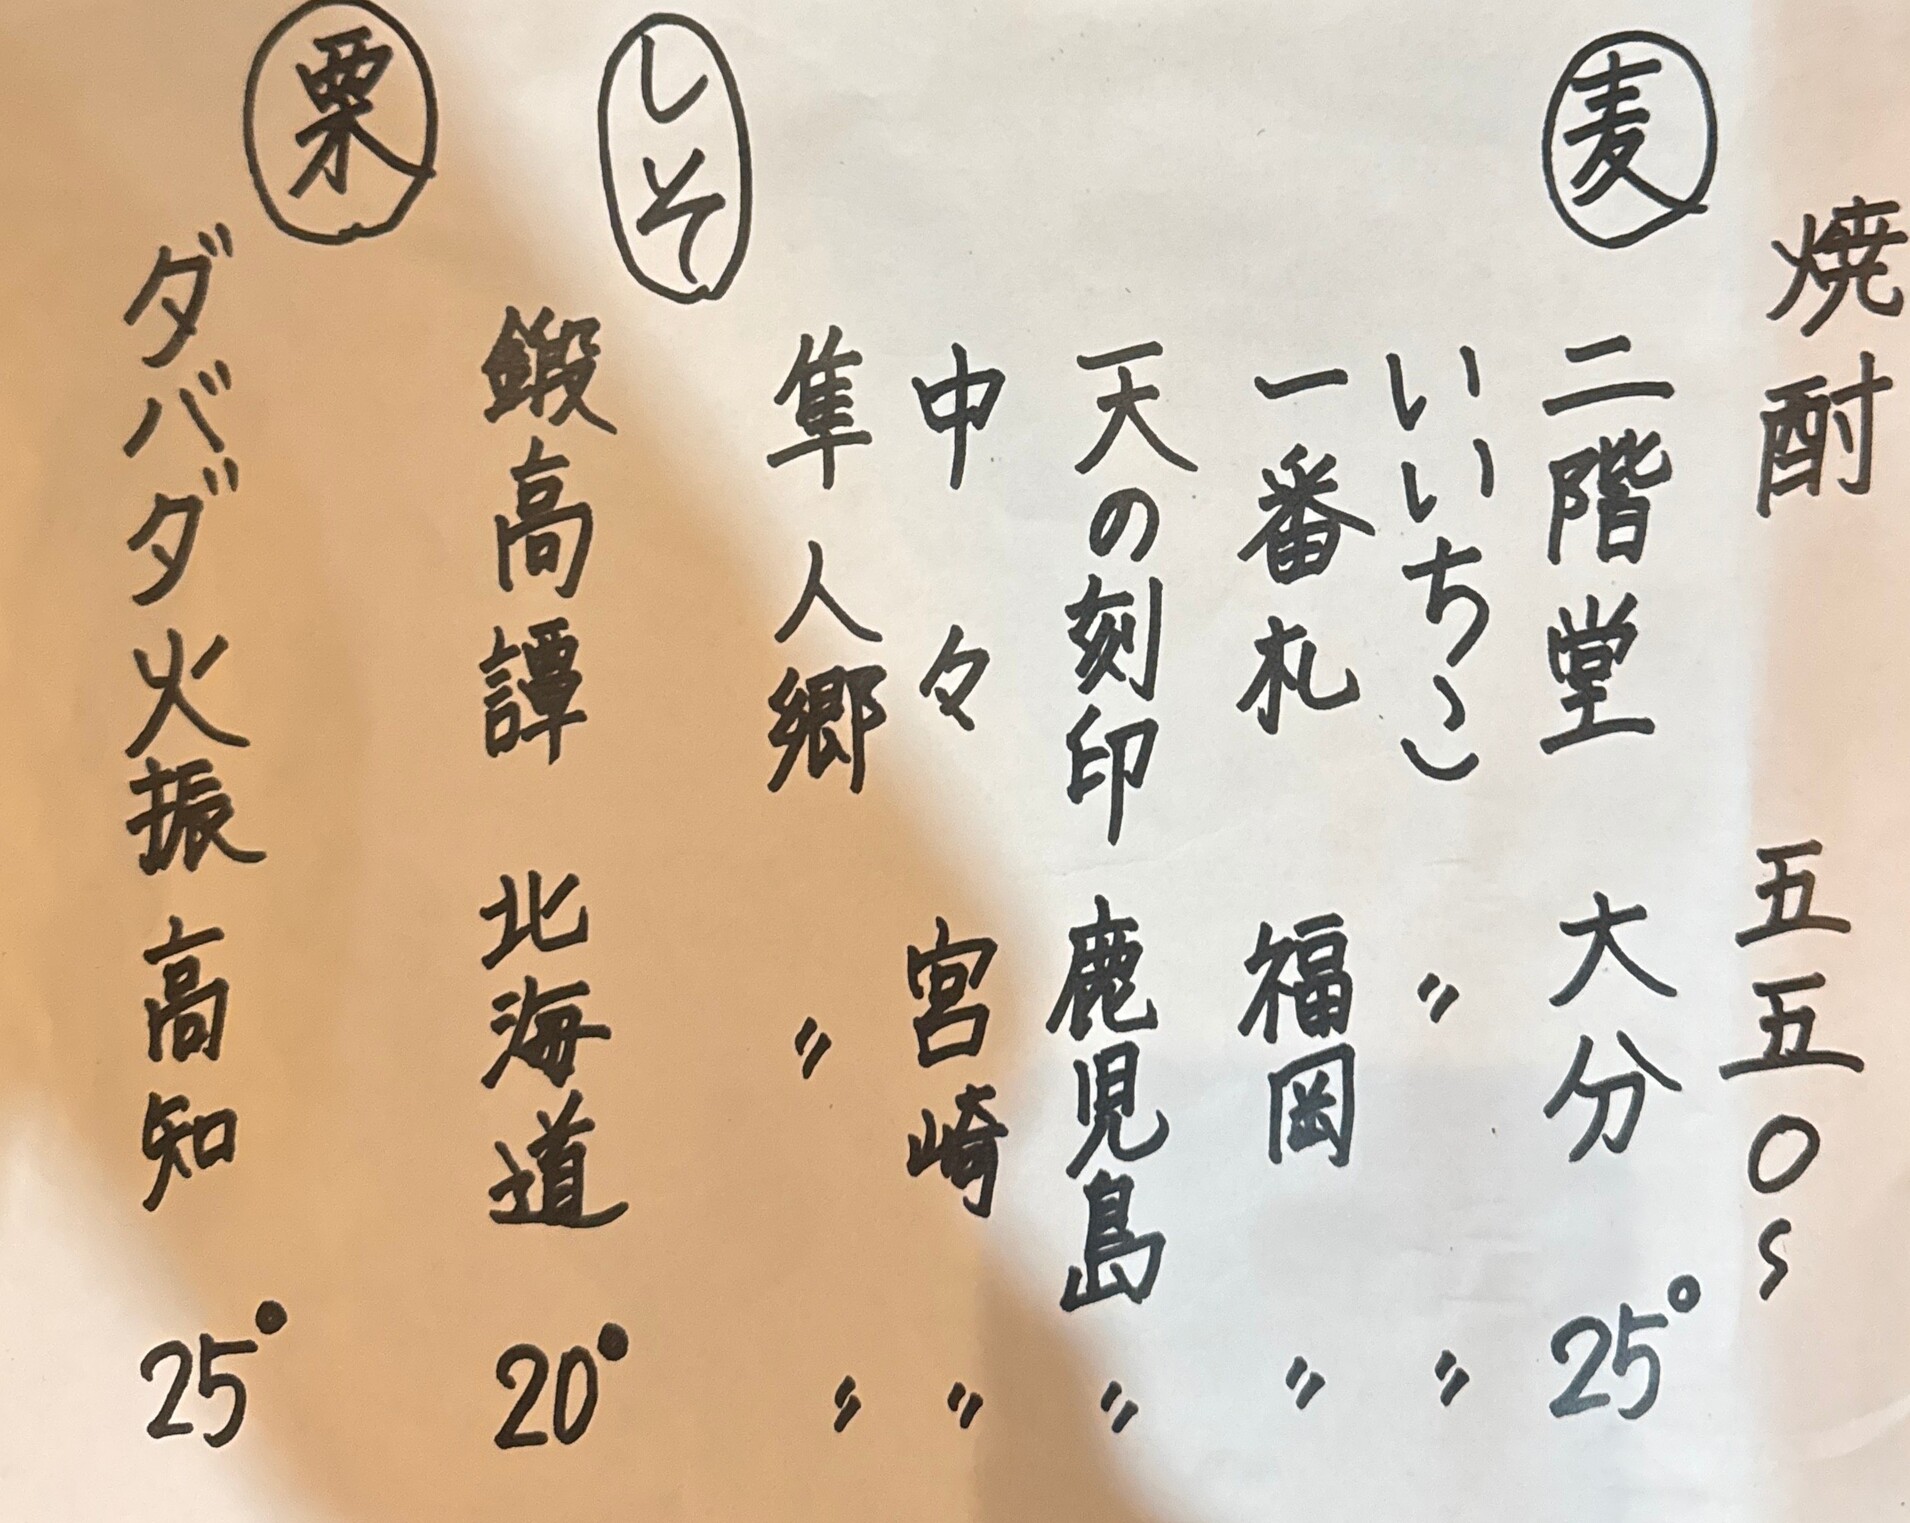 焼酎 五五〇〜
麦
二階堂 大分 25°
いいちこ 〃 〃
一番札 福岡 〃
天の刻印 鹿児島 〃
中々 宮崎 〃
隼人郷 〃 〃
しそ
鍛高譚 北海道 20°
栗
ダバダ火振 高知 25°